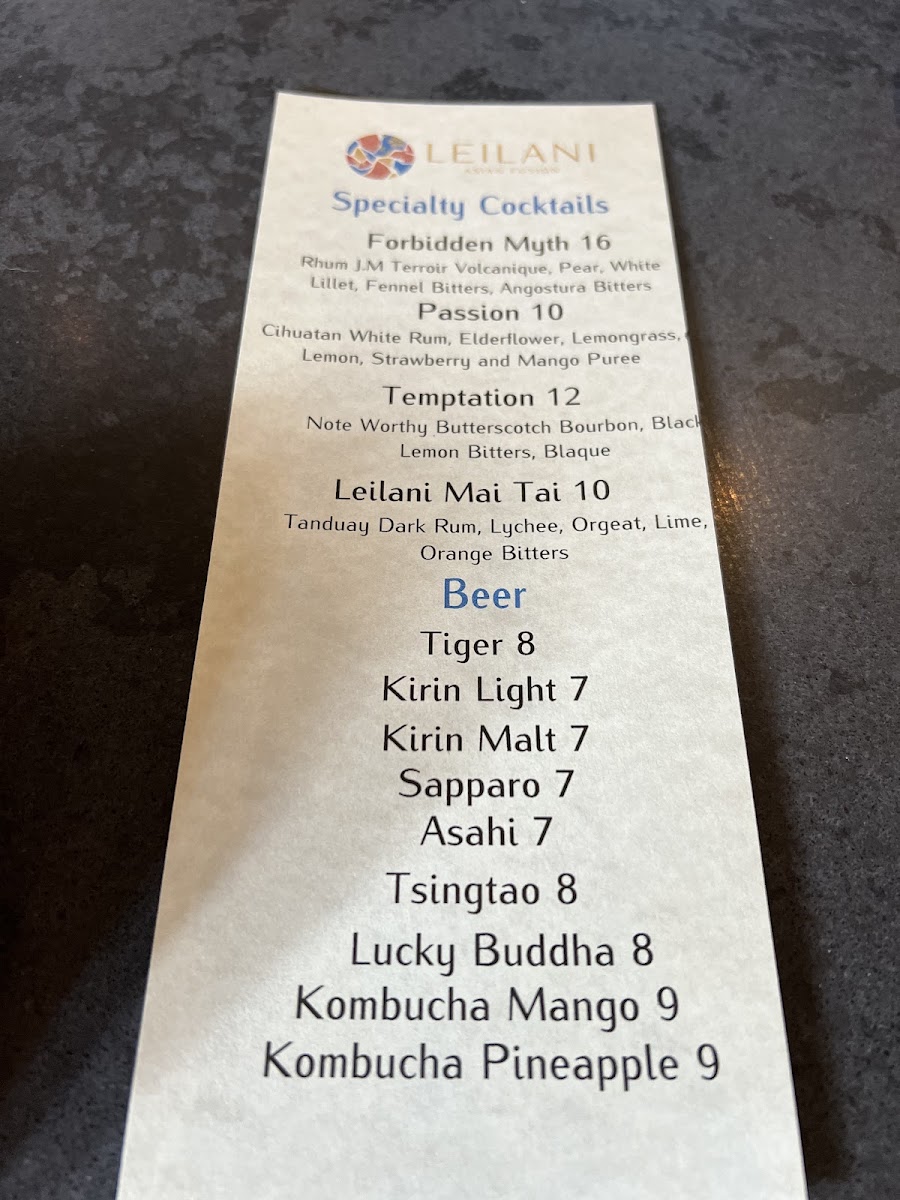 LEILANI
ASIAN FUSION
Specialty Cocktails
Forbidden Myth 16
Rhum J.M Terroir Volcanique, Pear, White
Lillet, Fennel Bitters, Angostura Bitters
Passion 10
Cihuatan White Rum, Elderflower, Lemongrass,
Lemon, Strawberry and Mango Puree
Temptation 12
Note Worthy Butterscotch Bourbon, Black
Lemon Bitters, Blaque
Leilani Mai Tai 10
Tanduay Dark Rum, Lychee, Orgeat, Lime,
Orange Bitters
Beer
Tiger 8
Kirin Light 7
Kirin Malt 7
Sapparo 7
Asahi 7
Tsingtao 8
Lucky Buddha 8
Kombucha Mango 9
Kombucha Pineapple 9